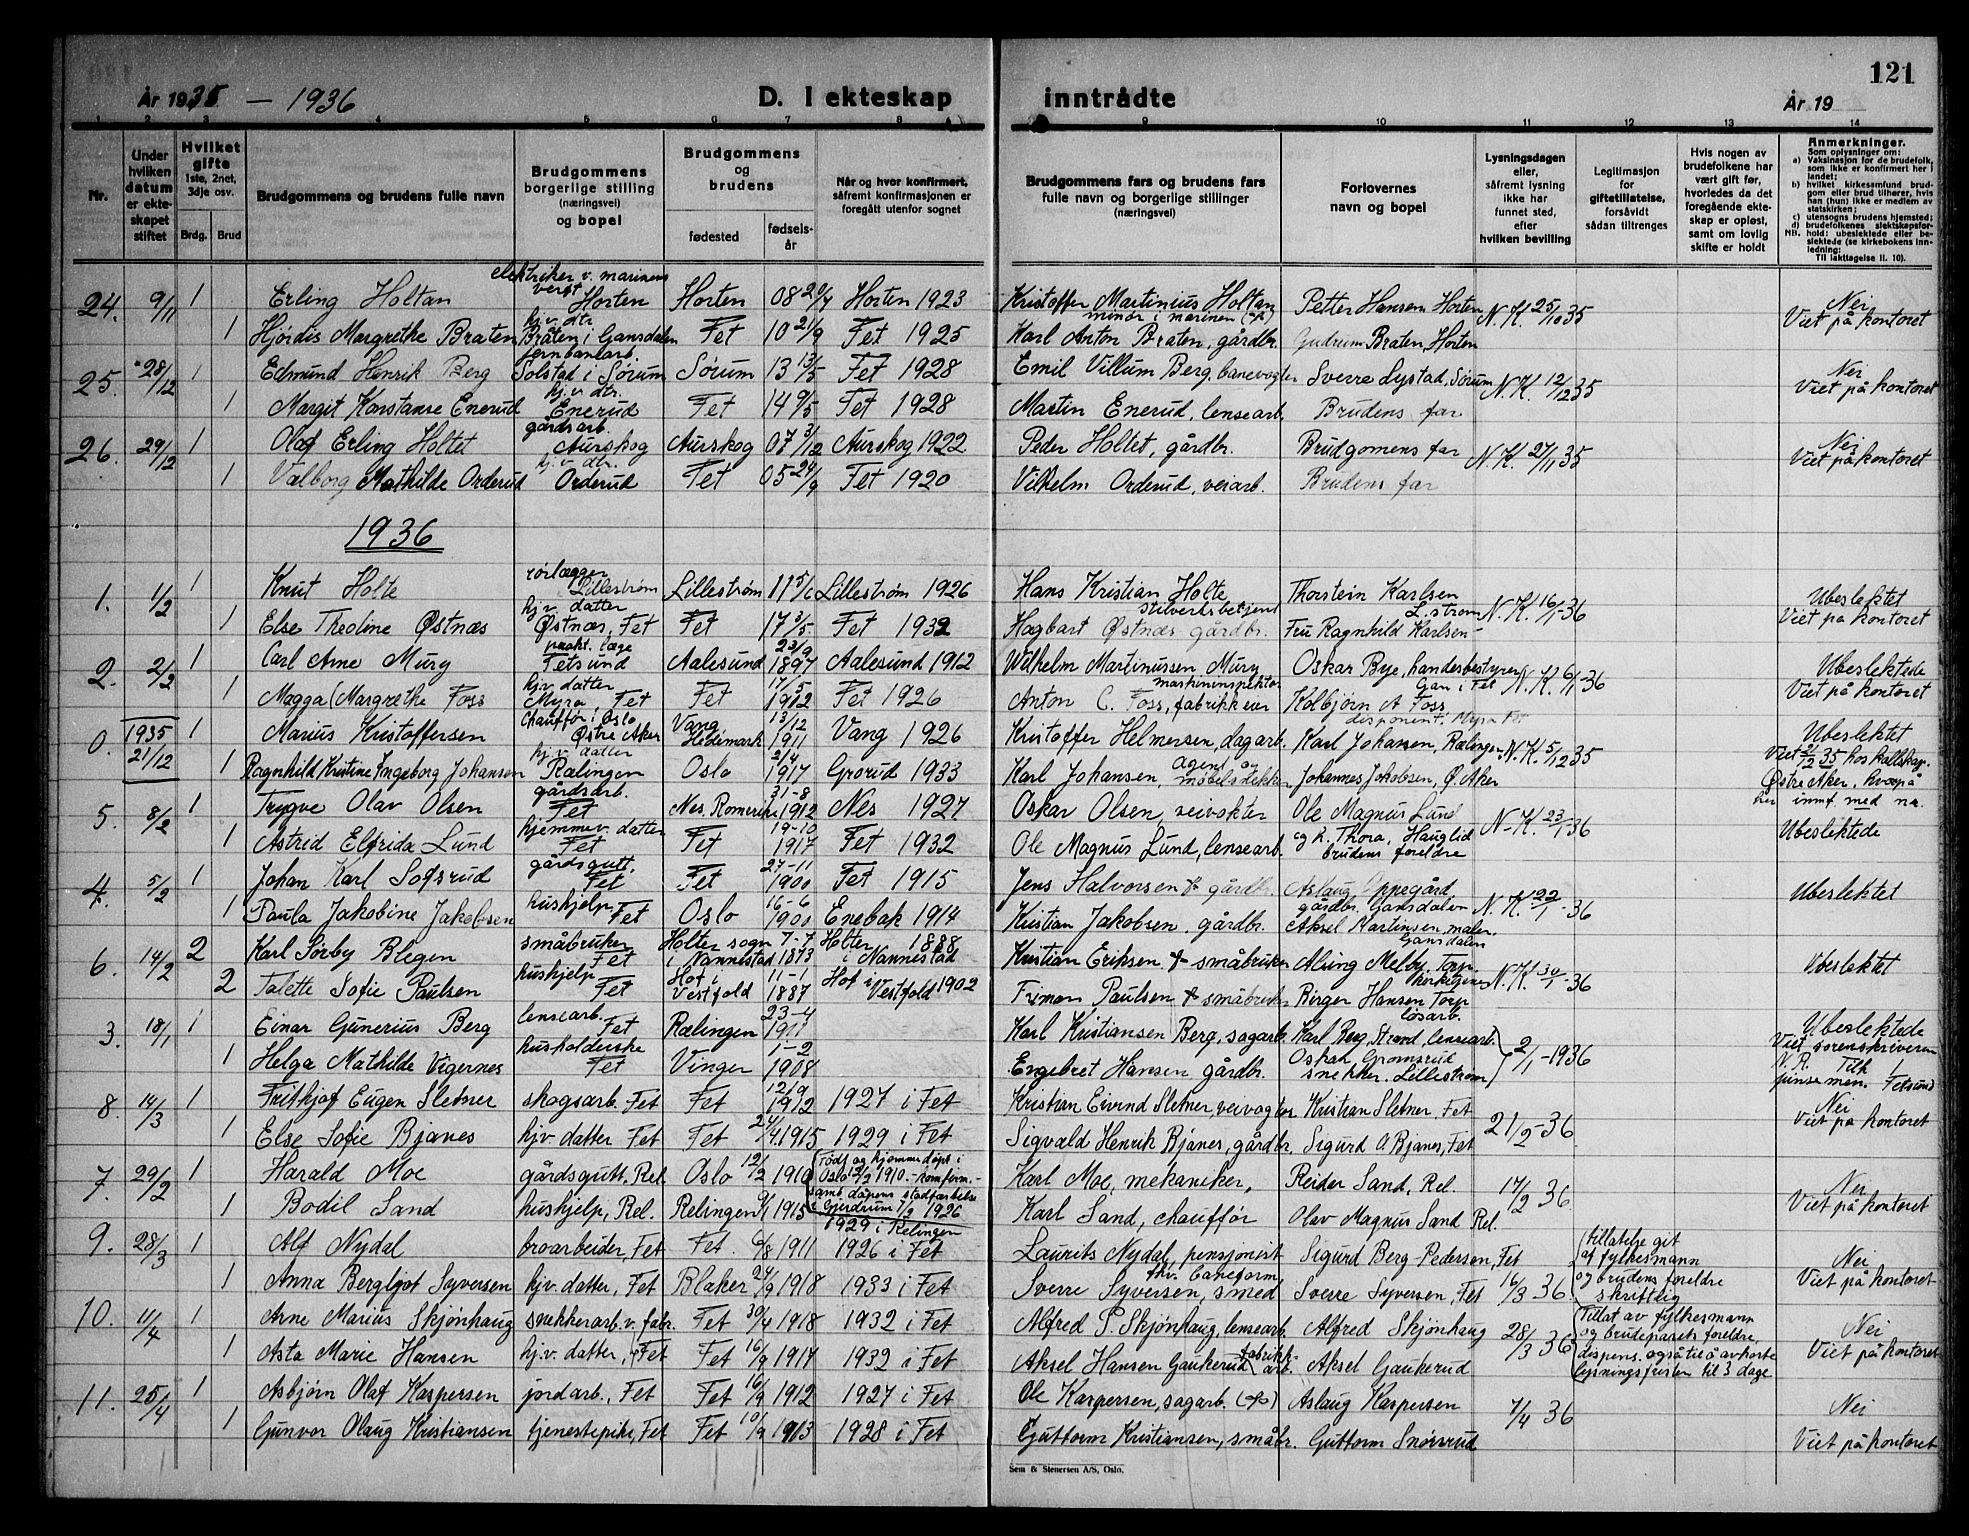 121
År 1935 – 1936
D. I ekteskap inntrådte
År 19
1 2 3 4 5 6 7 8 9 10 11 12 13 14
Nr.
Under hvilken datum er ekteskapet stiftet
Hvilket gifte 1ste, 2net, 3dje osv.
Brdg. Brud
Brudgommens og brudens fulle navn
Brudgommens borgerlige stilling (næringsvei) og bopel
Brudgommens og brudens
fødested
fødselsår
Når og hvor konfirmert, såfremt konfirmasjonen er foregått utenfor sognet
Brudgommens fars og brudens fars fulle navn og borgerlige stillinger (næringsvei)
Forlovernes navn og bopel
Lysningsdagen eller, såfremt lysning ikke har funnet sted, efter hvilken bevilling
Legitimasjon for giftetillatelse, forsåvidt sådan tiltrenges
Hvis nogen av brudefolkene har vært gift før, hvorledes da det foregående ekteskap er opløst, samt om lovlig skifte er holdt
Anmerkninger.
Som oplysninger om:
a) Vaksinasjon for de brudefolk, som ikke er konfirmert her i landet;
b) hvilket kirkesamfund brudgom eller brud tilhører, hvis han (hun) ikke er medlem av statskirken;
c) utensogns brudens hjemsted;
d) brudefolkenes slektskapsforhold: ubeslektede eller beslektede (se kirkebokens innledning;
NB. Til iakttagelse II. 10).
24. 9/11 1 Erling Holtan elektriker v. marinens verft Horten Horten 08 20/4 Horten 1923 Kristoffer Martinius Holtan minør i marinen Petter Hansen Horten N.K. 25/10 35 Nei Viet på kontoret
1 Hjørdis Margrethe Braten hj.v. dtr. Bråten i Gansdalen Fet 10 21/9 Fet 1925 Karl Anton Braten, gårdbr. Gudrun Braten, Horten
25. 28/12 1 Edmund Henrik Berg jernbanearb. Solstad i Sørum Sørum 13 13/5 Fet 1928 Emil Villum Berg, banevogter Sverre Lystad, Sørum N.K. 12/12 35 Nei Viet på kontoret
1 Margit Konstanse Enerud hj.v. dtr. Enerud Fet 14 9/5 Fet 1928 Martin Enerud, lensearb. Brudens far
26. 29/12 1 Olaf Erling Holtet gårdsarb. Aurskog Aurskog 07 3/12 Aurskog 1922 Peder Holtet, gårdbr. Brudgomens far N.K. 27/11 35 Nei Viet på kontoret
1 Valborg Mathilde Orderud hj.v. dtr. Orderud Fet 05 24/9 Fet 1920 Vilhelm Orderud, veiarb. Brudens far
1936
1. 1/2 1 Knut Holte rørlægger Lillestrøm Lillestrøm 11 5/6 Lillestrøm 1926 Hans Kristian Holte Thorstein Karlsen L.strøm N.K. 16/1-36 Ubeslektet Viet på kontoret
1 Else Theoline Østnæs hj.v. datter Østnæs, Fet Fet 17 3/5 Fet 1932 Hagbart Østnæs gårdbr. Fru Ragnhild Karlsen
2. 2/2 1 Carl Arne Murg prakt. læge Fetsund Aalesund 23/9 1897 Aalesund 1912 Wilhelm Martinussen Murg maskininspektør Oskar Bye, handesbestyrer Gan i Fet N.K. 6/1-36 Ubeslektede Viet på kontoret
1 Magga (Margrethe Foss hj.v. datter Myra, Fet Fet 17/5 1912 Fet 1926 Anton C. Foss, fabrikkeier Kolbjørn A Foss disponent. Myra Fet
0. 1935 21/12 1 Marius Kristoffersen chauffør i Oslo Østre Aker Vang Hedemark 13/12 1911 Vang 1926 Kristoffer Helmersen, dagarb. Karl Johansen, Rælingen N.K. 5/12 35 Ubeslektet Viet 21/12 35 hos
1 Ragnhild Kristine Ingeborg Johansen hj.v. datter Rælingen Oslo 2/4 1917 Grorud 1933 Karl Johansen, agent og Johannes Jakobsen, Ø. Aker Østre Aker,
5. 8/2 1 Trygve Olav Olsen gårdsarb. Fet Nes. Romerike 31-8 1912 Nes 1927 Oskar Olsen, veivokter Ole Magnus Lund N.K. 23/1 36 Ubeslektede
1 Astrid Elfrida Lund hjemmev. datter Fet Fet 19-10 1917 Fet 1932 Ole Magnus Lund, lensearb. og h. Thora, Hauglid brudens foreldre
4. 5/2 1 Johan Karl Sofsrud gårdsgutt. Fet Fet 27-11 1900 Fet 1915 Jens Halvorsen gårdbr. Aslaug Oppegård gårdbr. Gansdalen N.K. 22/1-36 Ubeslektet
1 Paula Jakobine Jakobsen hushjelp Fet Oslo 16-6 1900 Enebak 1914 Kristian Jakobsen, gårdbr. Aksel Martinsen, maler. Gansdalen
6. 14/2 2 Karl Sørby Blegen småbruker Fet Holter sogn i Nannestad 7-7 1873 Holter i Nannestad 1888 Kristian Eriksen + småbruker Alving Melby, Torp N.K. 30/1-36 Ubeslektet
2 Talette Sofie Paulsen hushjelp Fet Hof i Vestfold 11-1 1887 Hof i Vestfold 1902 Paulsen + småbruker Birger Hansen Torp løsarb.
3. 18/1 1 Einar Gunerius Berg lensearb. Fet Rælingen 23-4 1911 Karl Kristiansen Berg, sagarb. Karl Berg, Strand, lensearb. 2/1-1936 Ubeslektede Viet sorenskriveren
1 Helga Mathilde Vigernes husholderske Fet Vinger 1-2 1908 Engebret Hansen gårdbr. Oskar Gromsrud snekker. Lillestrøm N. R.
8. 14/3 1 Frithjof Eugen Sletner skogsarb. Fet Fet 12/9 1912 1927 i Fet Kristian Eivind Sletner, veivogter Kristian Sletner Fet 21/2-36 Nei Viet på kontoret
1 Else Sofie Bjanes hjv datter Fet Fet 24/4 1915 1929 i Fet Sigvald Henrik Bjanes, gårdbr. Sigurd A Bjanes, Fet
7. 29/2 1 Harald Moe gårdsgutt. Rel. Oslo 12/2 1910 Født og hjemmedøpt i Oslo 12/2 1910. - konfirm. - samt dåpens stadfæstelse i Gjerdrum 1/2 1926 Karl Moe, mekaniker, Reidar Sand, Rel. 17/2 36 Nei Viet på kontoret
1 Bodil Sand hushjelp, Rel. Relingen 1915 1929 i Relingen Karl Sand, chauffør Olav Magnus Sand Rel.
9. 28/3 1 Alf Nydal broarbeider, Fet Fet 6/8 1911 1926 i Fet Laurits Nydal, pensjonist fhv. baneform. Sigurd Berg-Pedersen, Fet 16/3 36 tillatelse git af fylkesmann og brudens foreldre skriftlig Nei Viet på kontoret
1 Anna Bergljot Syversen hjv. datter, Fet Blaker 24/9 1918 1933 i Fet Sverre Syversen, smed Sverre Syversen, Fet
10. 11/4 1 Arne Marius Skjønhaug snekkerarb. v. fabr. Fet 30/4 1918 1932 i Fet Alfred P. Skjønhaug, lensearb. Alfred Skjønhaug 28/3 36 Tillat av fylkesmann og brudeparets foreldre dispens. også til å avkorte lysningsfristen til 3 dage Nei Viet på kontoret
1 Asta Marie Hansen hj.v. datter, Fet Fet 16/9 1917 1932 i Fet Aksel Hansen Gaukerud fabrikkarb. Aksel Gaukerud
11. 25/4 1 Asbjørn Olaf Kaspersen jordarb., Fet Fet 16/9 1912 1927 i Fet Ole Kaspersen, sagarb. (+) Aslaug Kaspersen 7/4 36 Nei Viet på kontoret
1 Gunvor Olaug Kristiansen tjenestepike, Fet Fet 10/9 1913 1928 i Fet Guttorm Kristiansen, småbr. Guttorm Snørsrud
Sem & Stenersen A/S, Oslo.